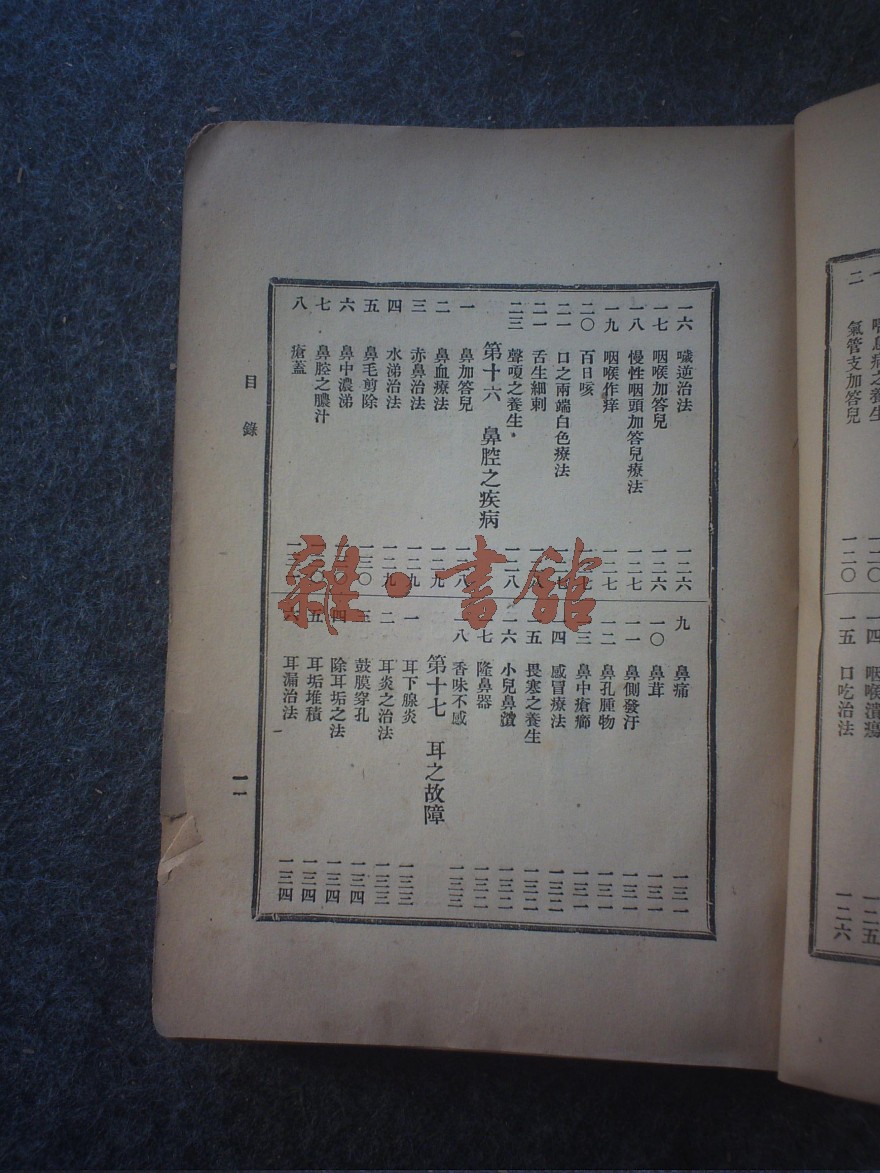 二 氣管支加答兒 一二〇
一四 咽喉潰瘍 一二五
一五 口吃治法 一二六
一六 噦逆治法 一二六
一七 咽喉加答兒 一二六
一八 慢性咽頭加答兒療法 一二七
一九 咽喉作痒 一二七
二〇 百日咳 一二七
二一 口之兩端白色療法 一二七
二一 舌生細刺 一二八
二三 聲嗄之養生 一二八
第十六 鼻腔之疾病
一 鼻加答兒 一二八
二 鼻血療法 一二九
三 赤鼻治法 一二九
四 水涕治法 一二九
五 鼻毛剪除 一三〇
六 鼻中濃涕
七 鼻腔之膿汁
八 瘡蓋
九 鼻痛 一三一
一〇 鼻茸 一三一
一一 鼻側發汙 一三一
一二 鼻孔腫物 一三一
一三 鼻中瘡癤 一三一
一四 感冒療法 一三二
一五 畏寒之養生 一三二
一六 小兒鼻瀆 一三二
一七 隆鼻器 一三二
一八 香味不感 一三三
第十七 耳之故障
一 耳下腺炎 一三三
二 耳炎之治法 一三三
三 鼓膜穿孔 一三四
四 除耳垢之法 一三四
五 耳垢堆積 一三四
六 耳漏治法 一三四
目錄
一一
雜·書館